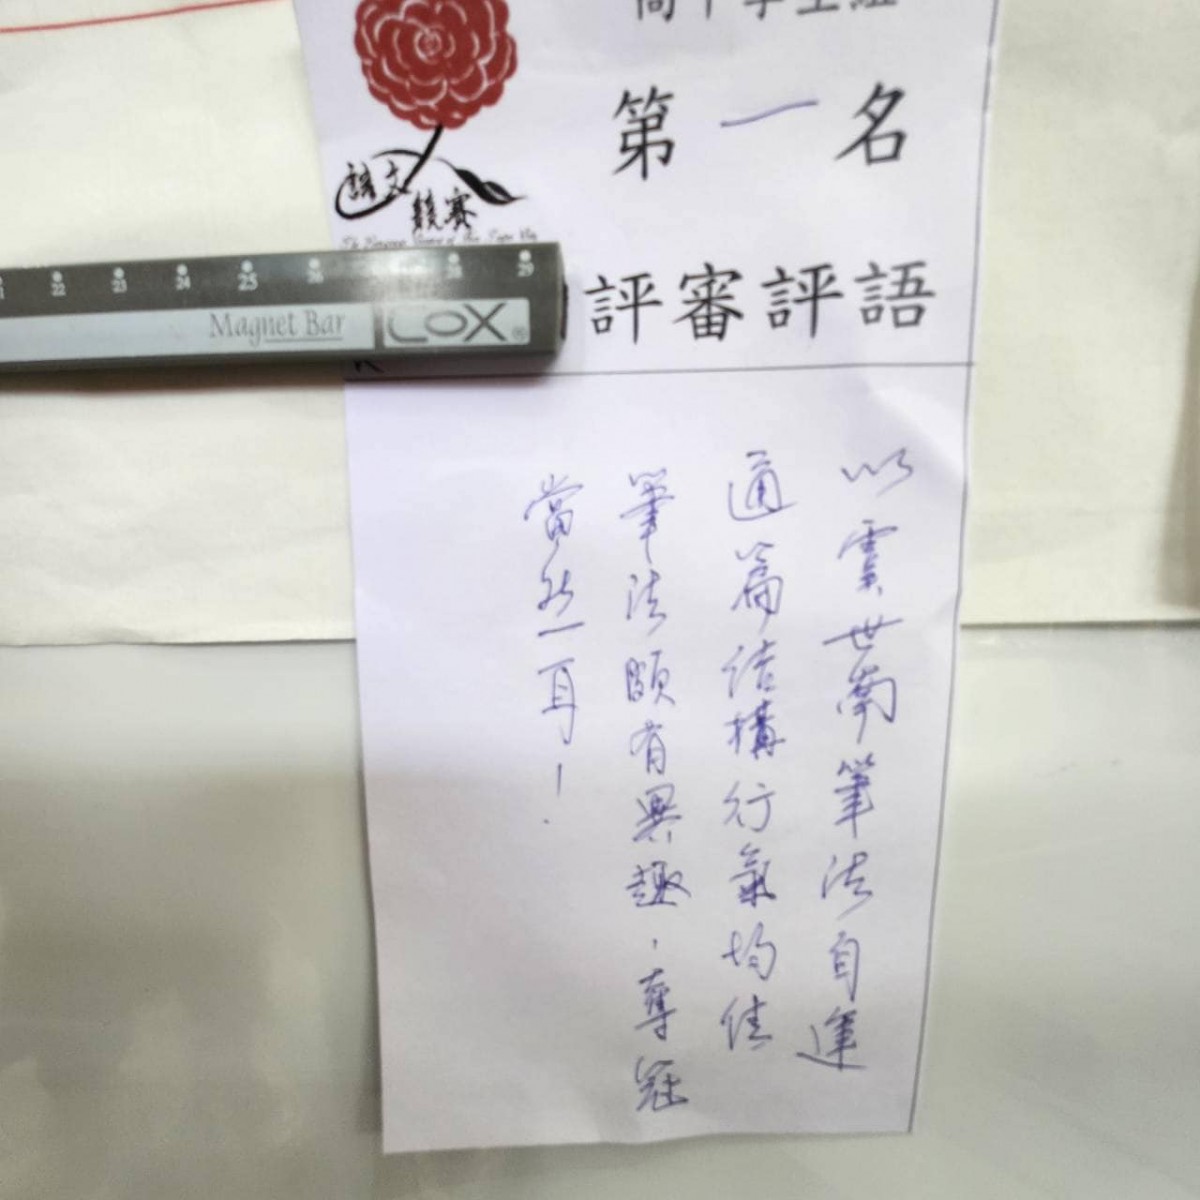 高中學生組
第一名
語文
競賽
22 23 24 25 26 28 29
Magnet Bar LOX®
評審評語
以虞世南筆法自運
通篇結構行氣均佳
筆法頗有異趣，奪冠
當然一耳！